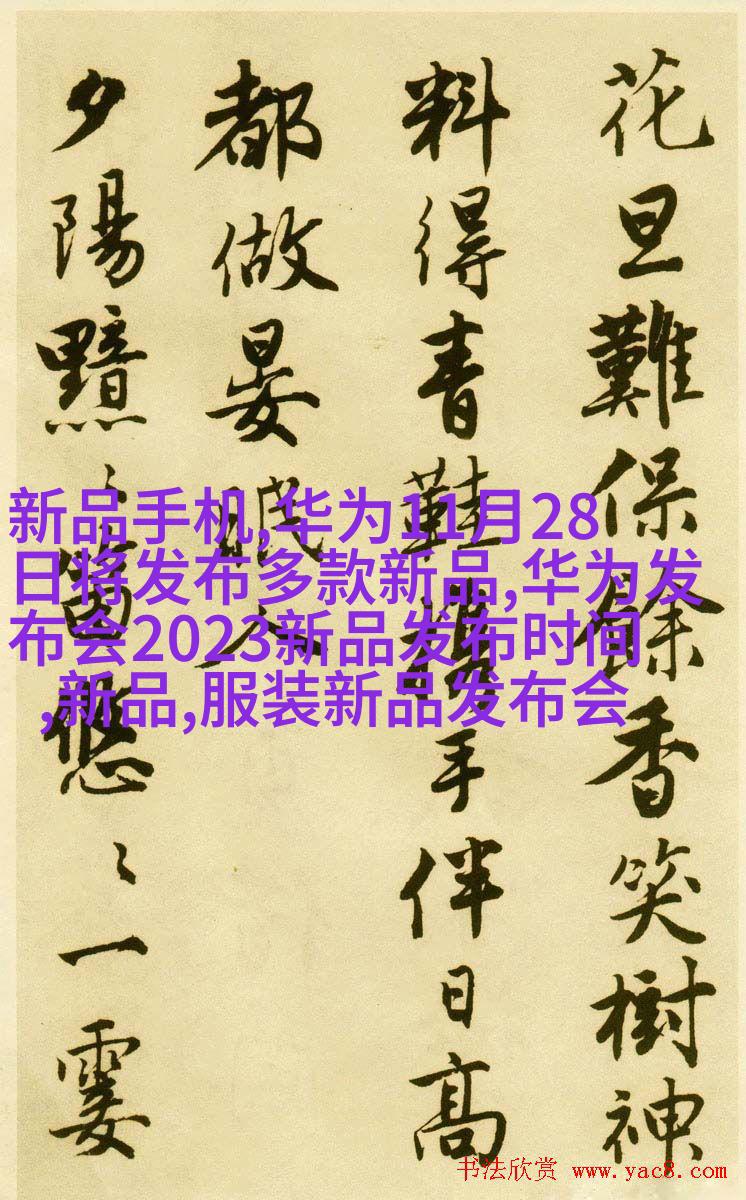 花旦難保餘香笑樹神
料得青鞋携手伴日高
都做晏眠人
夕陽黯〻笛悠〻一霎
新品手机,华为11月28
日将发布多款新品,华为发
布会2023新品发布时间
,新品,服装新品发布会
书法欣赏 www.yac8.com